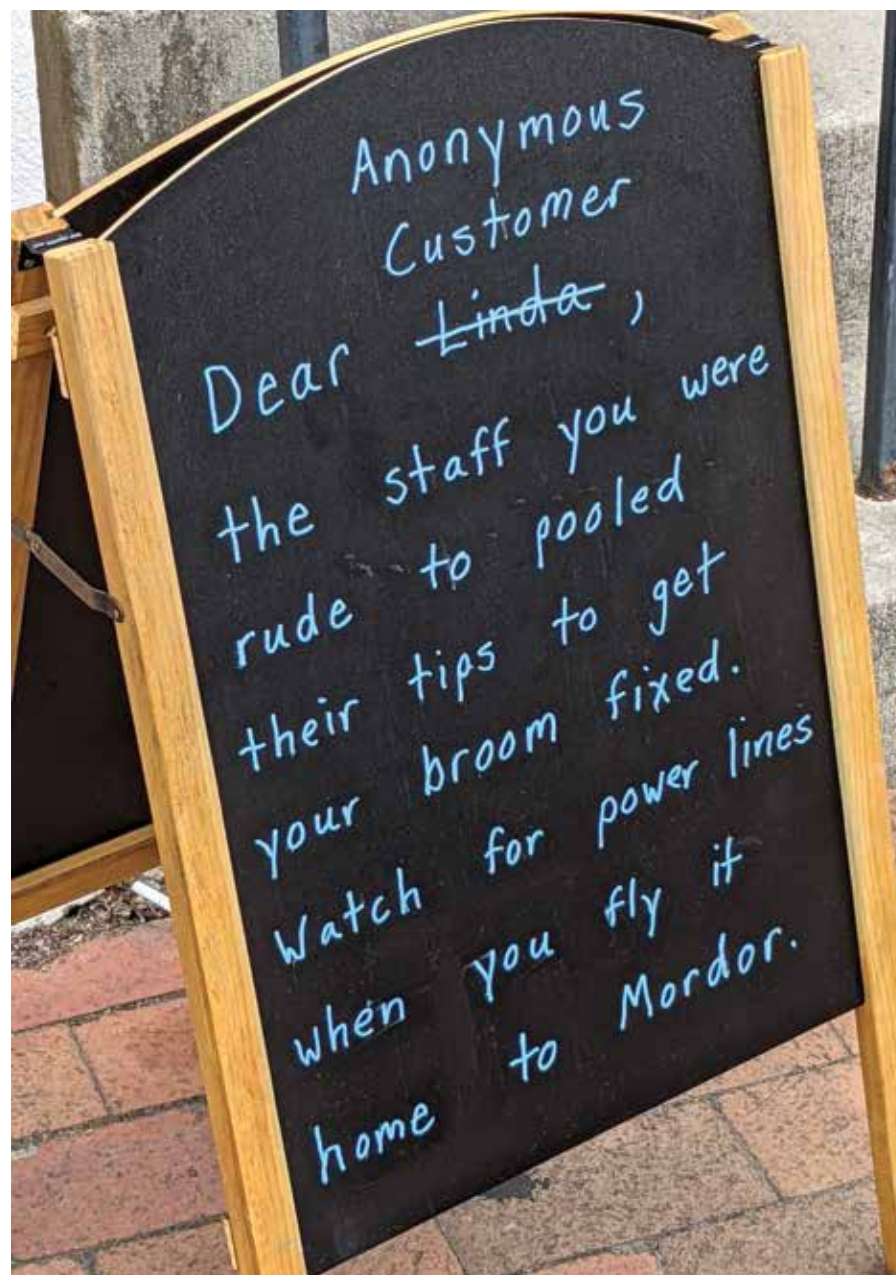 Anonymous
Customer
Dear Linda,
the staff you were
rude to pooled
their tips to get
your broom fixed.
Watch for power lines
when you fly it
home to Mordor.